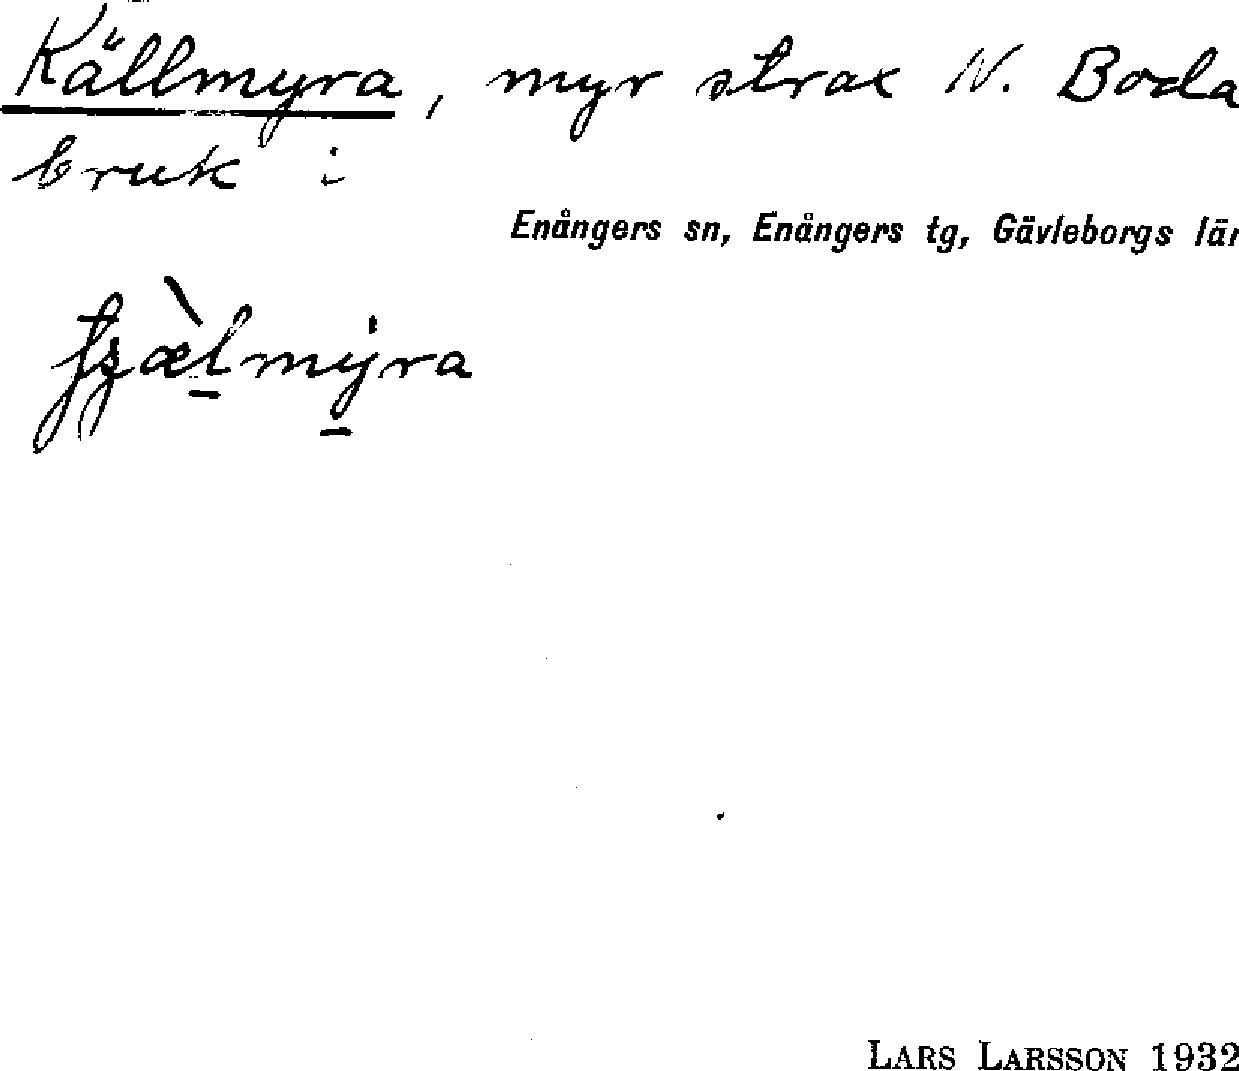 Källmyra, myr strax N. Boda
bruk i
Enångers sn, Enångers tg, Gävleborgs län
LARS LARSSON 1932